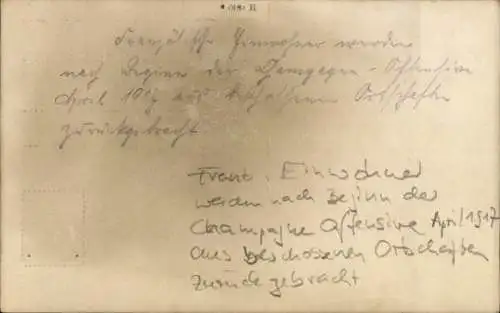 Französische Einwohner werden
nach Beginn der Champagne-Offensive
April 1917 aus beschossenen Ortschaften
zurückgebracht.
Franz. Einwohner
werden nach Beginn der
Champagne Offensive April 1917
aus beschossenen Ortschaften
zurückgebracht